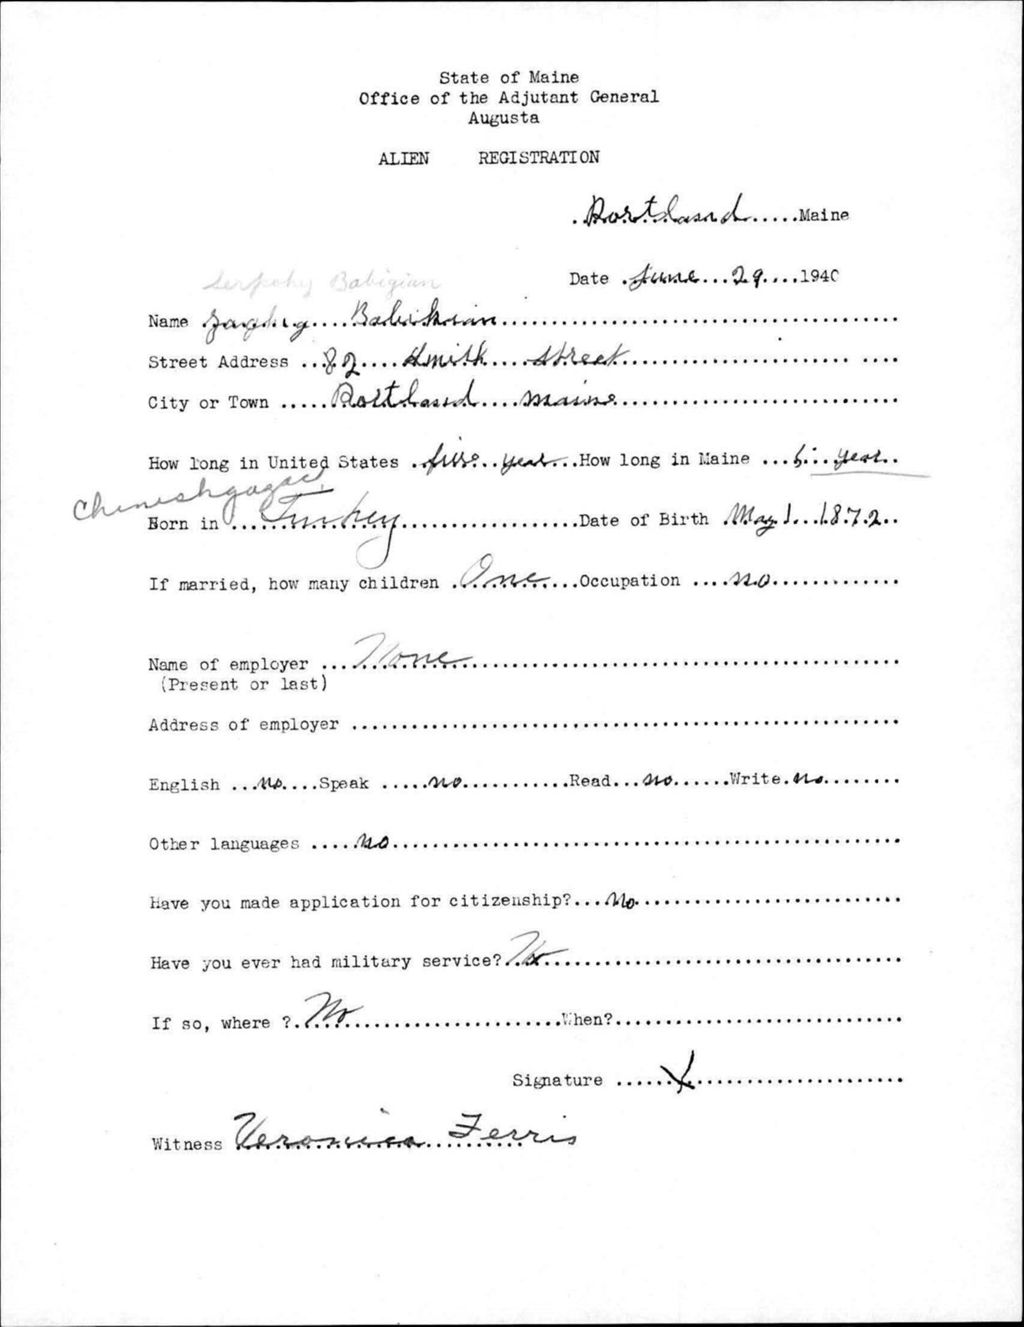 State of Maine
Office of the Adjutant General
Augusta
ALIEN REGISTRATION
.Portland.....Maine
Date .June...29....1940
Serpohy Babigian
Name ....Babikian....
Street Address ...82....Smith....Street....
City or Town .....Portland....Maine....
How long in United States ..five..year...How long in Maine ...5...year..
Born in ....Turkey....Date of Birth .May 1...1872..
If married, how many children .One...Occupation ....no....
Name of employer ...None....
(Present or last)
Address of employer ....
English ...no....Speak .....no....Read...no......Write.no....
Other languages .....no....
Have you made application for citizenship?...No....
Have you ever had military service?..No....
If so, where ?.No....When?....
Signature ......X....
Witness Veronica....Ferris